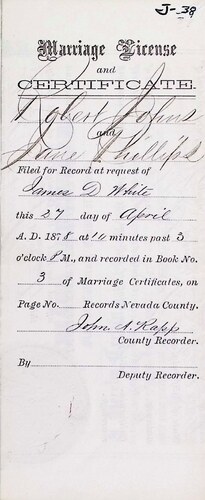 J-38
Marriage License
and
CERTIFICATE.
Robert Johns
and
Jane Phillips
Filed for Record at request of
James D White
this 27 day of April
A. D. 1878 at 10 minutes past 3
o'clock P M., and recorded in Book No.
3 of Marriage Certificates, on
Page No. Records Nevada County.
John A. Rapp
County Recorder.
By
Deputy Recorder.